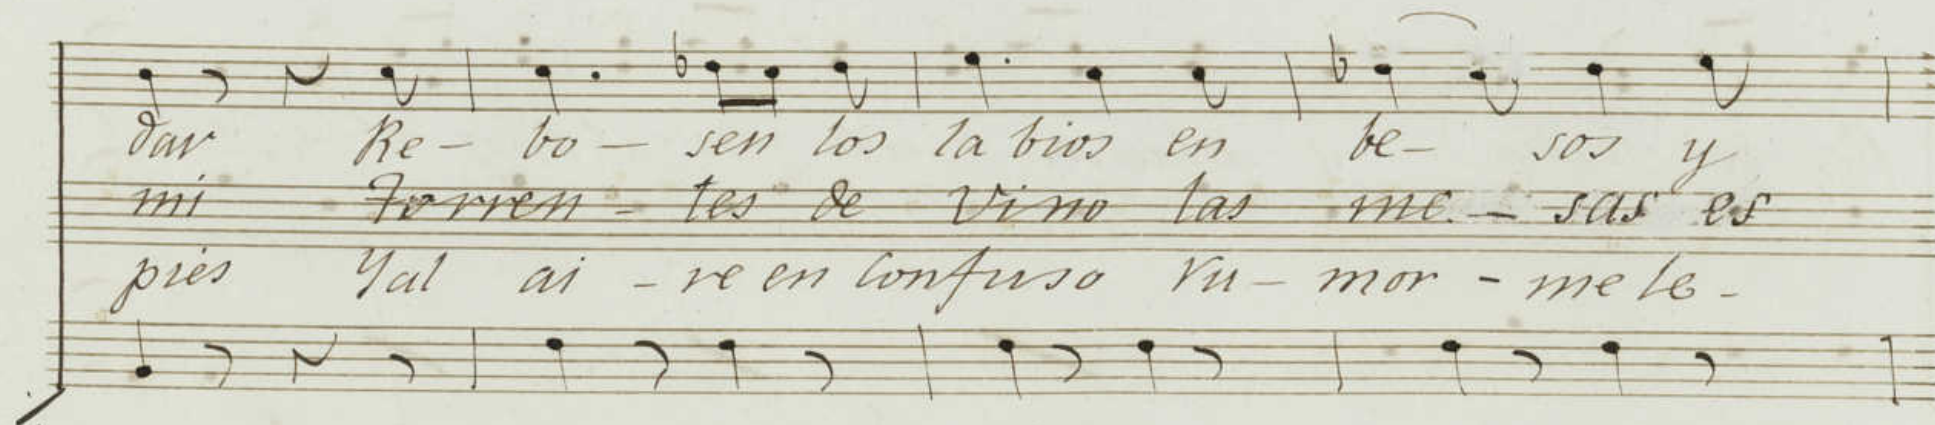 dar Re- bo- sen los la bios en be- sos y
mi Torren- tes de Vino las me- sas es
pies Y al ai- re en confuso ru- mor- me le-